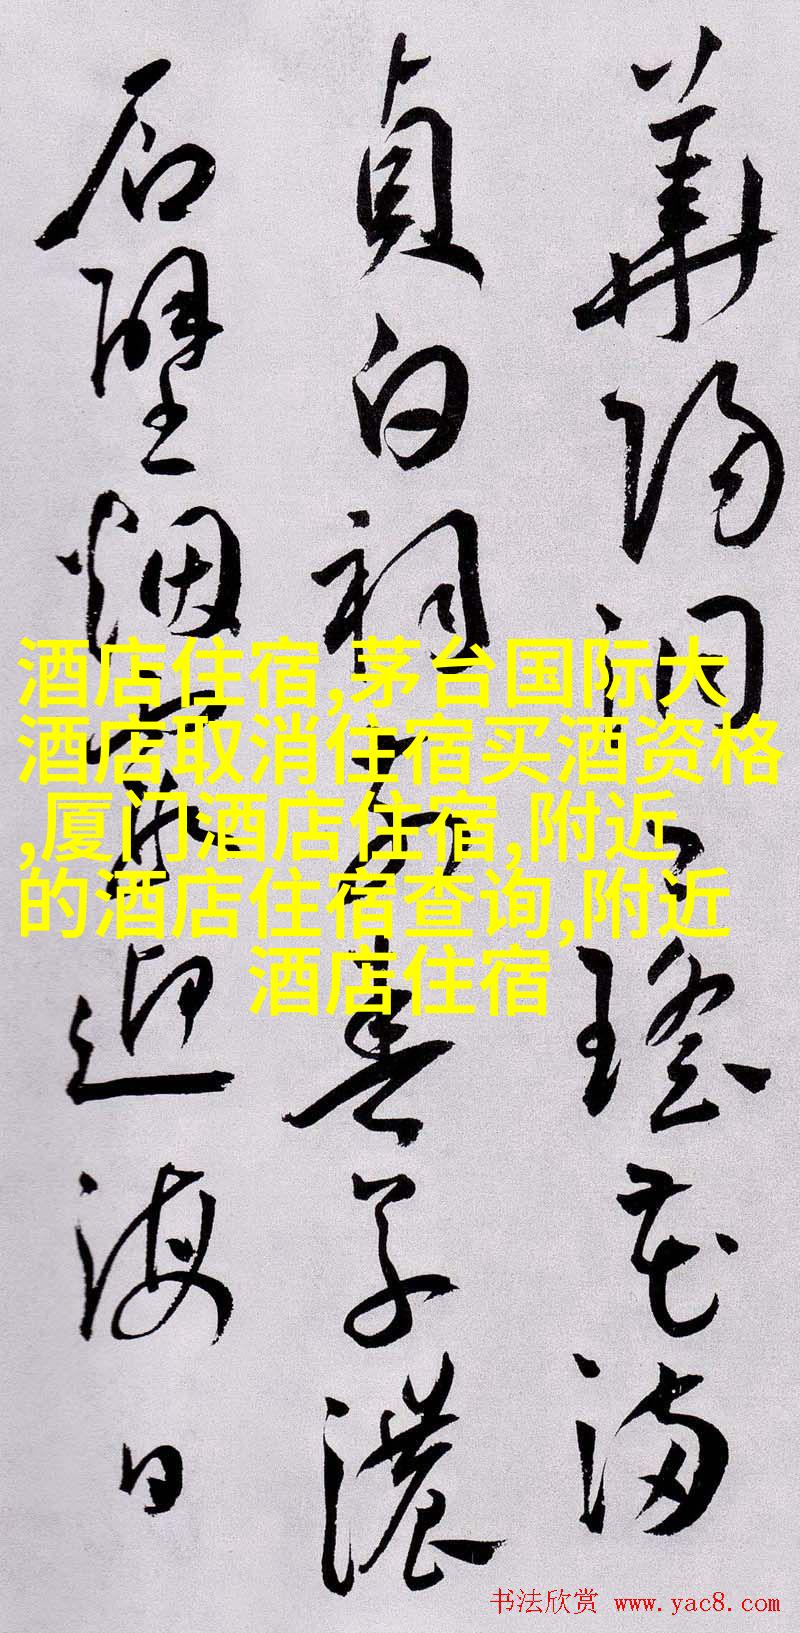 華陽洞口瑤花滿
貞白祠前春草濃
石壁烟霞迎海日
酒店住宿,茅台国际大
酒店取消住宿买酒资格
,厦门酒店住宿,附近
的酒店住宿查询,附近
酒店住宿
书法欣赏 www.yac8.com